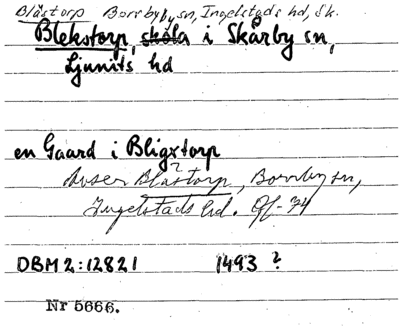 Blåstorp Borrby sn, Ingelstads hd, Sk.
Blekstorp, skåla i Skårby sn,
Ljunits hd
en Gaard i Bligxtorp
?
Avser Blåstorp, Borrby sn,
Ingelstads hd. Gf-74
DBM 2:12821 1493 ?
Nr 5666.